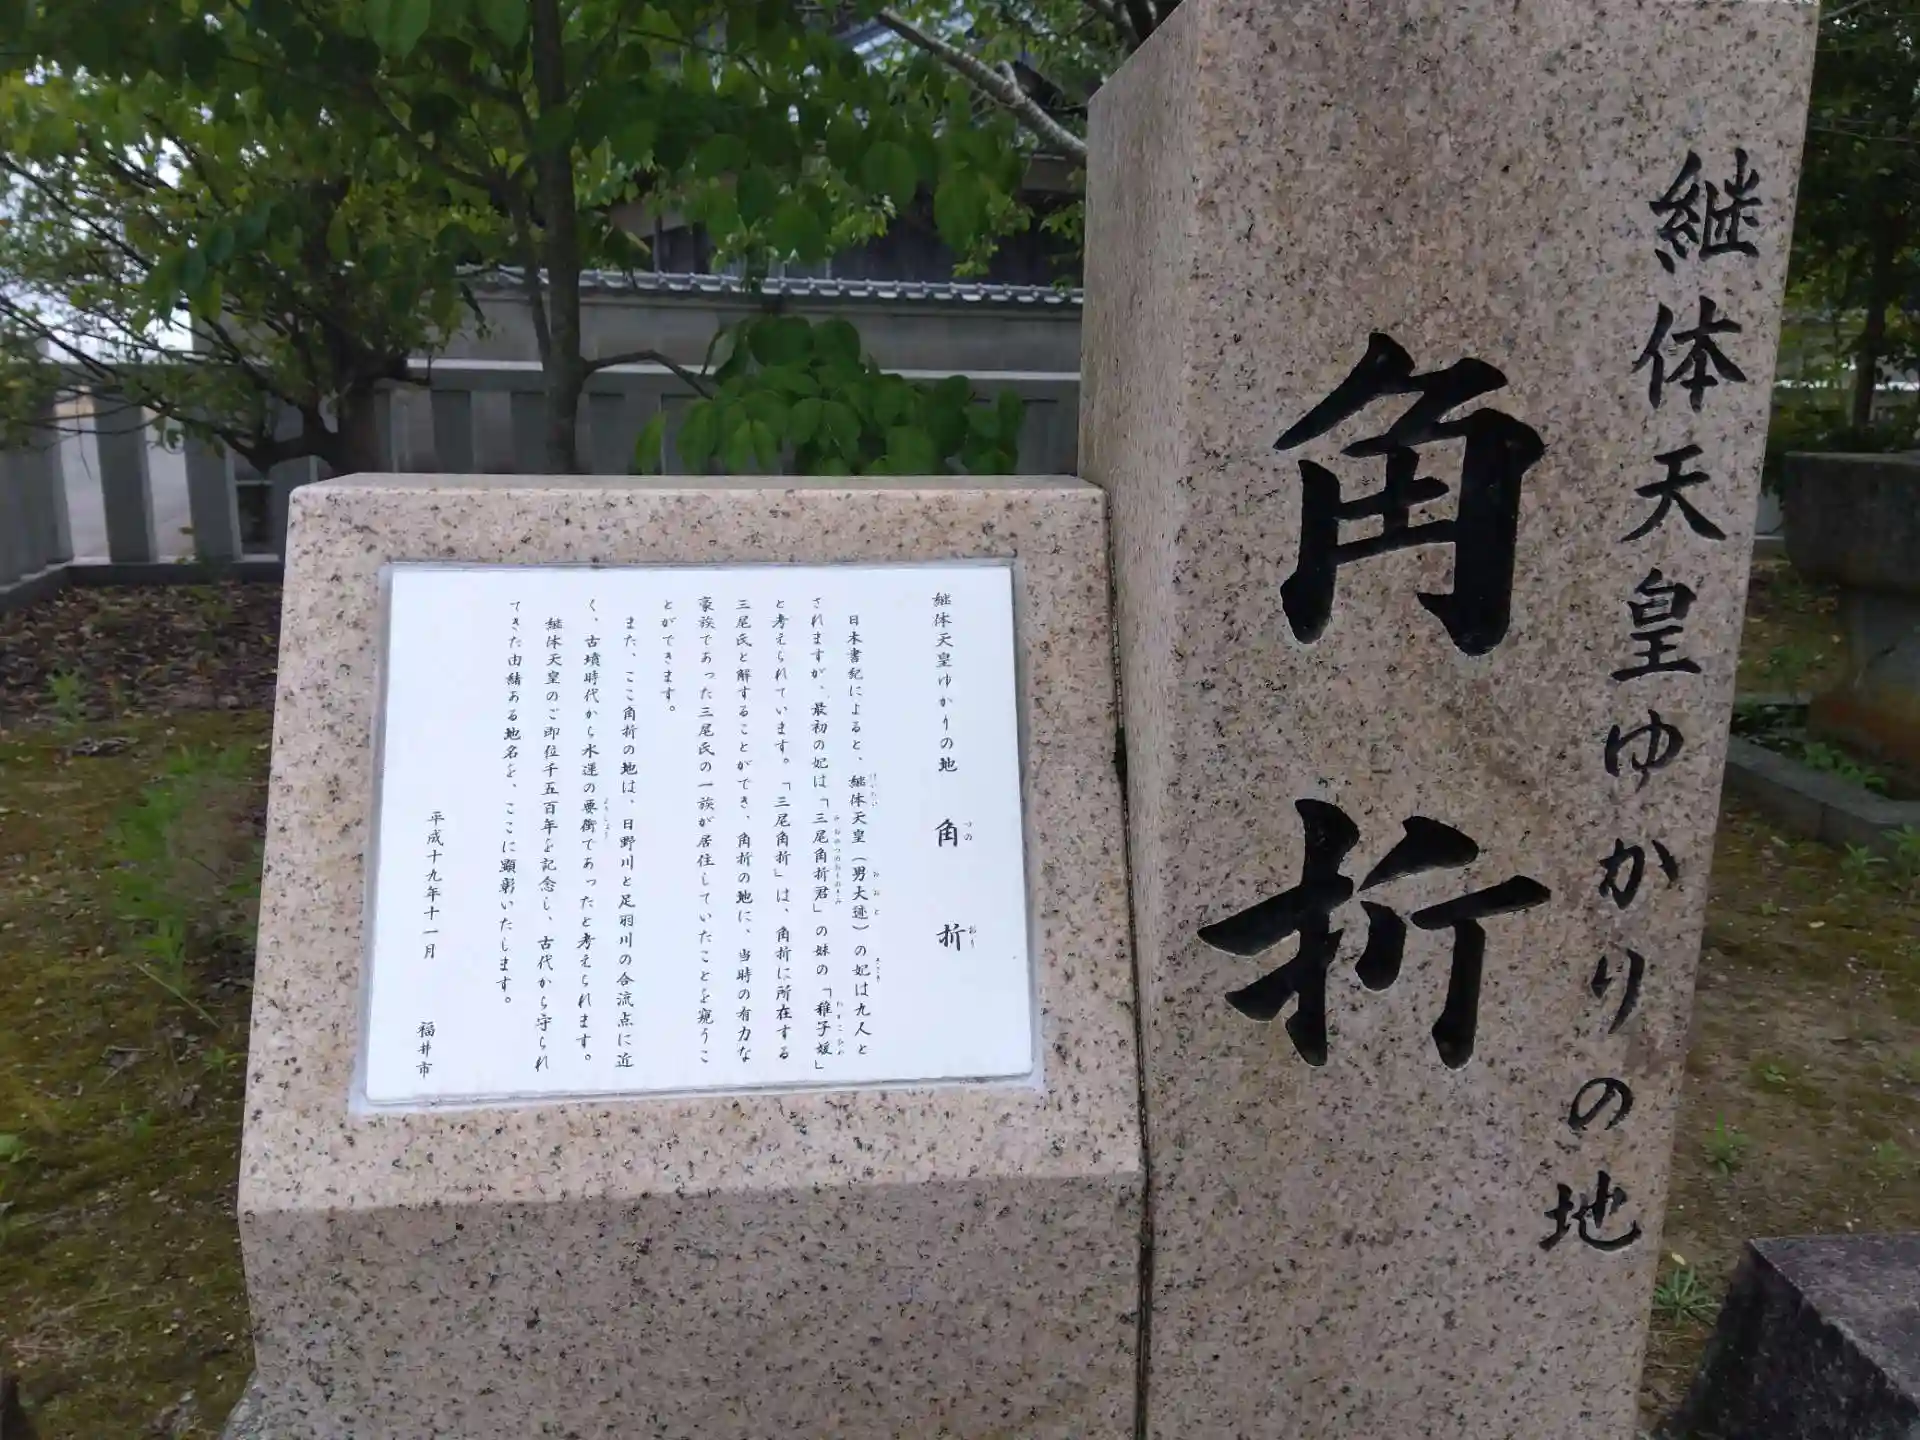 継体天皇ゆかりの地
角折
継体天皇ゆかりの地 角折
つの おり
日本書紀によると、継体天皇(男大迹)の妃は九人と
けいたい おおど きさき
されますが、最初の妃は「三尾角折君」の妹の「稚子媛」
みおのつのおりのきみ わかこひめ
と考えられています。「三尾角折」は、角折に所在する
三尾氏と解することができ、角折の地に、当時の有力な
豪族であった三尾氏の一族が居住していたことを窺うこ
とができます。
また、ここ角折の地は、日野川と足羽川の合流点に近
く、古墳時代から水運の要衝であったと考えられます。
ようしょう
継体天皇のご即位千五百年を記念し、古代から守られ
てきた由緒ある地名を、ここに顕彰いたします。
平成十九年十一月 福井市